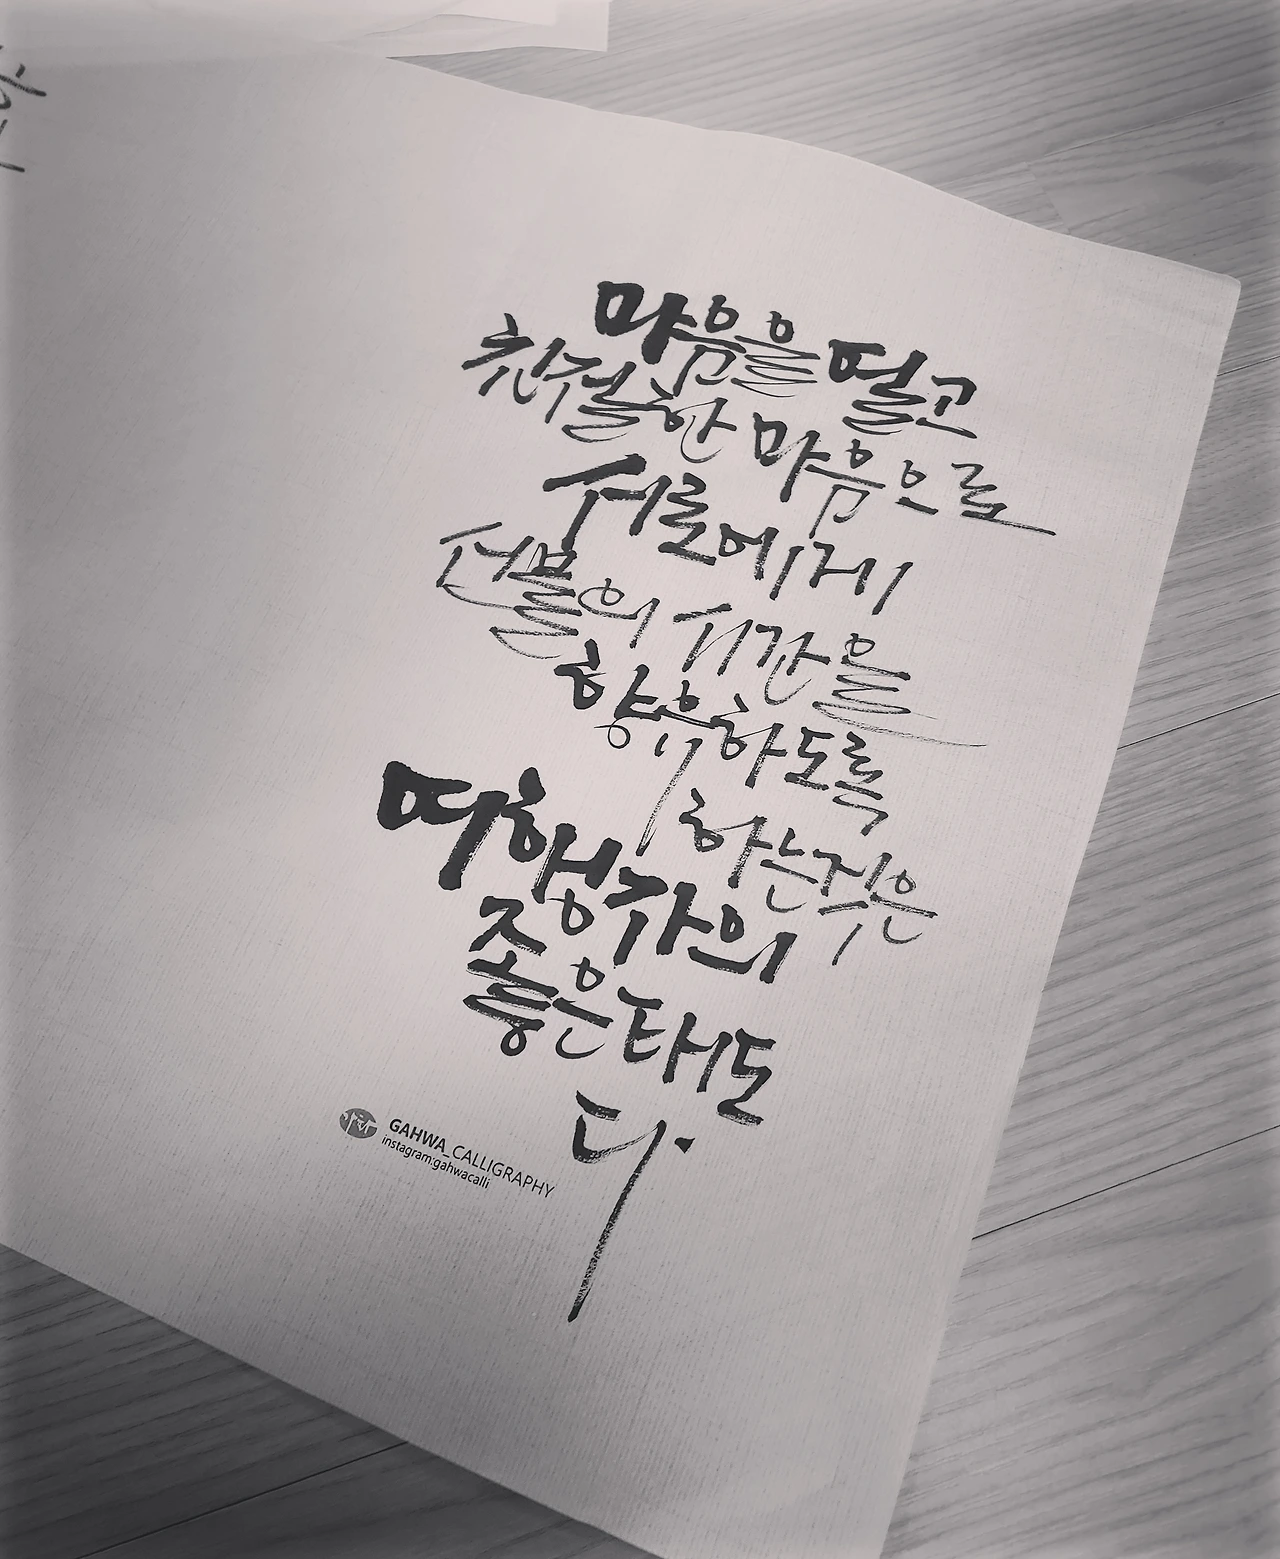 마음을 열고
친절한 마음으로
서로에게
선물의 시간을
향유하도록
하는 것은
여행가의
좋은 태도
다.
GAHWA_CALLIGRAPHY
instagram:gahwacalli